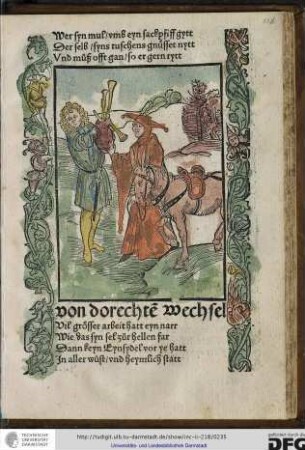 Wer syn mul/ vmb eyn sackpfiff gytt
Der selb/ syns tuschens gnüsset nytt
Vnd müß offt gan/ so er gern rytt
von dorechtē wechsel
Vil grösser arbeit hatt eyn narr
Wie das syn sel zůr hellen far
Dann keyn Eynsydel vor ye hatt
In aller wůst/ vnd heymlich statt
TECHNISCHE
UNIVERSITÄT
DARMSTADT
http://tudigit.ulb.tu-darmstadt.de/show/inc-ii-218/0235
Universitäts- und Landesbibliothek Darmstadt
gefördert durch die
DFG